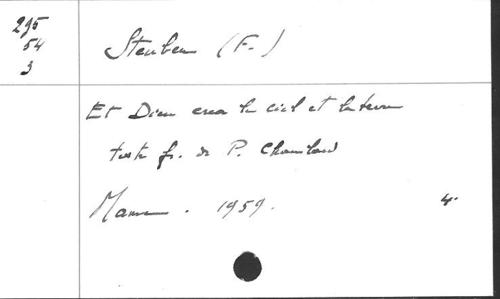 295
54
3
Steuben (F.)
Et Dieu créa le ciel et la terre
texte fr. de P. Chambard
Mame. 1959. 4°